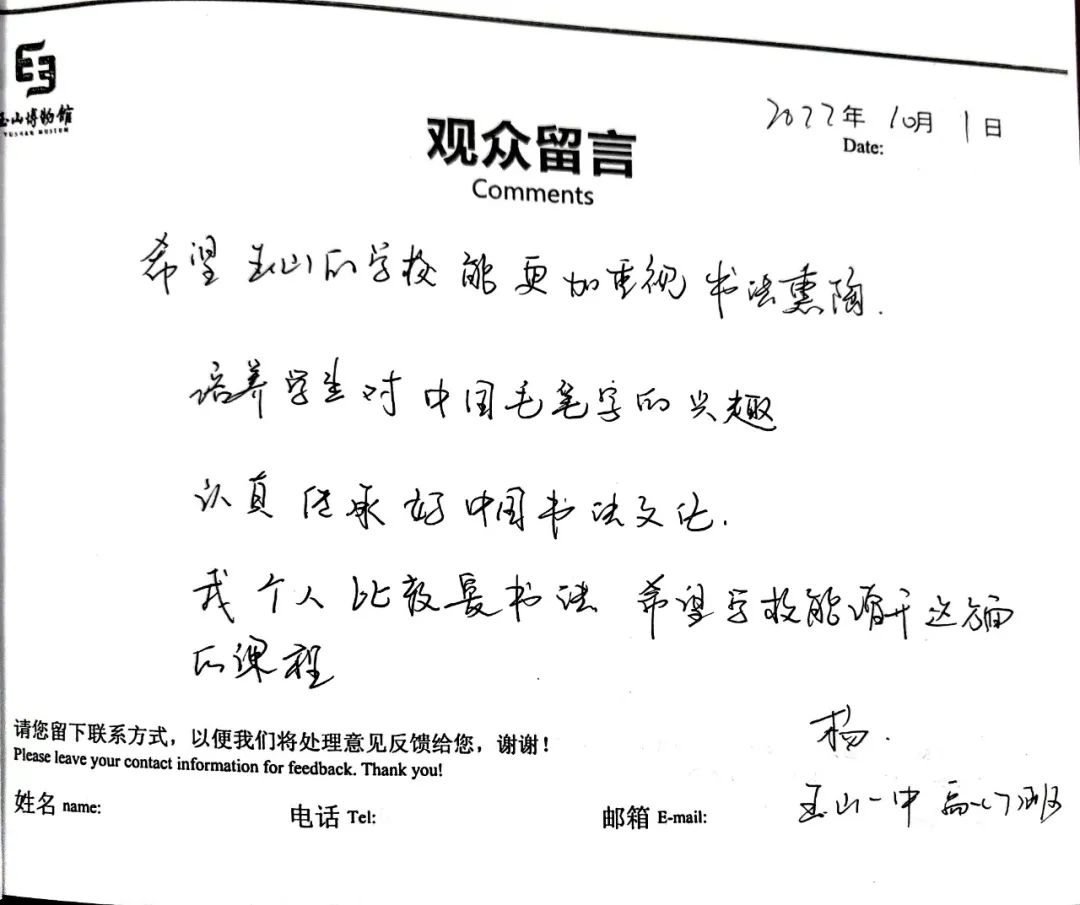 玉山博物馆
YUSHAN MUSEUM
2022年 10月 1日
Date:
观众留言
Comments
希望玉山的学校能更加重视书法熏陶.
培养学生对中国毛笔字的兴趣
认真传承好中国书法文化.
我个人比较爱书法 希望学校能增开这方面
的课程
杨.
玉山一中高一(7)班
请您留下联系方式，以便我们将处理意见反馈给您，谢谢！
Please leave your contact information for feedback. Thank you!
姓名 name:
电话 Tel:
邮箱 E-mail: